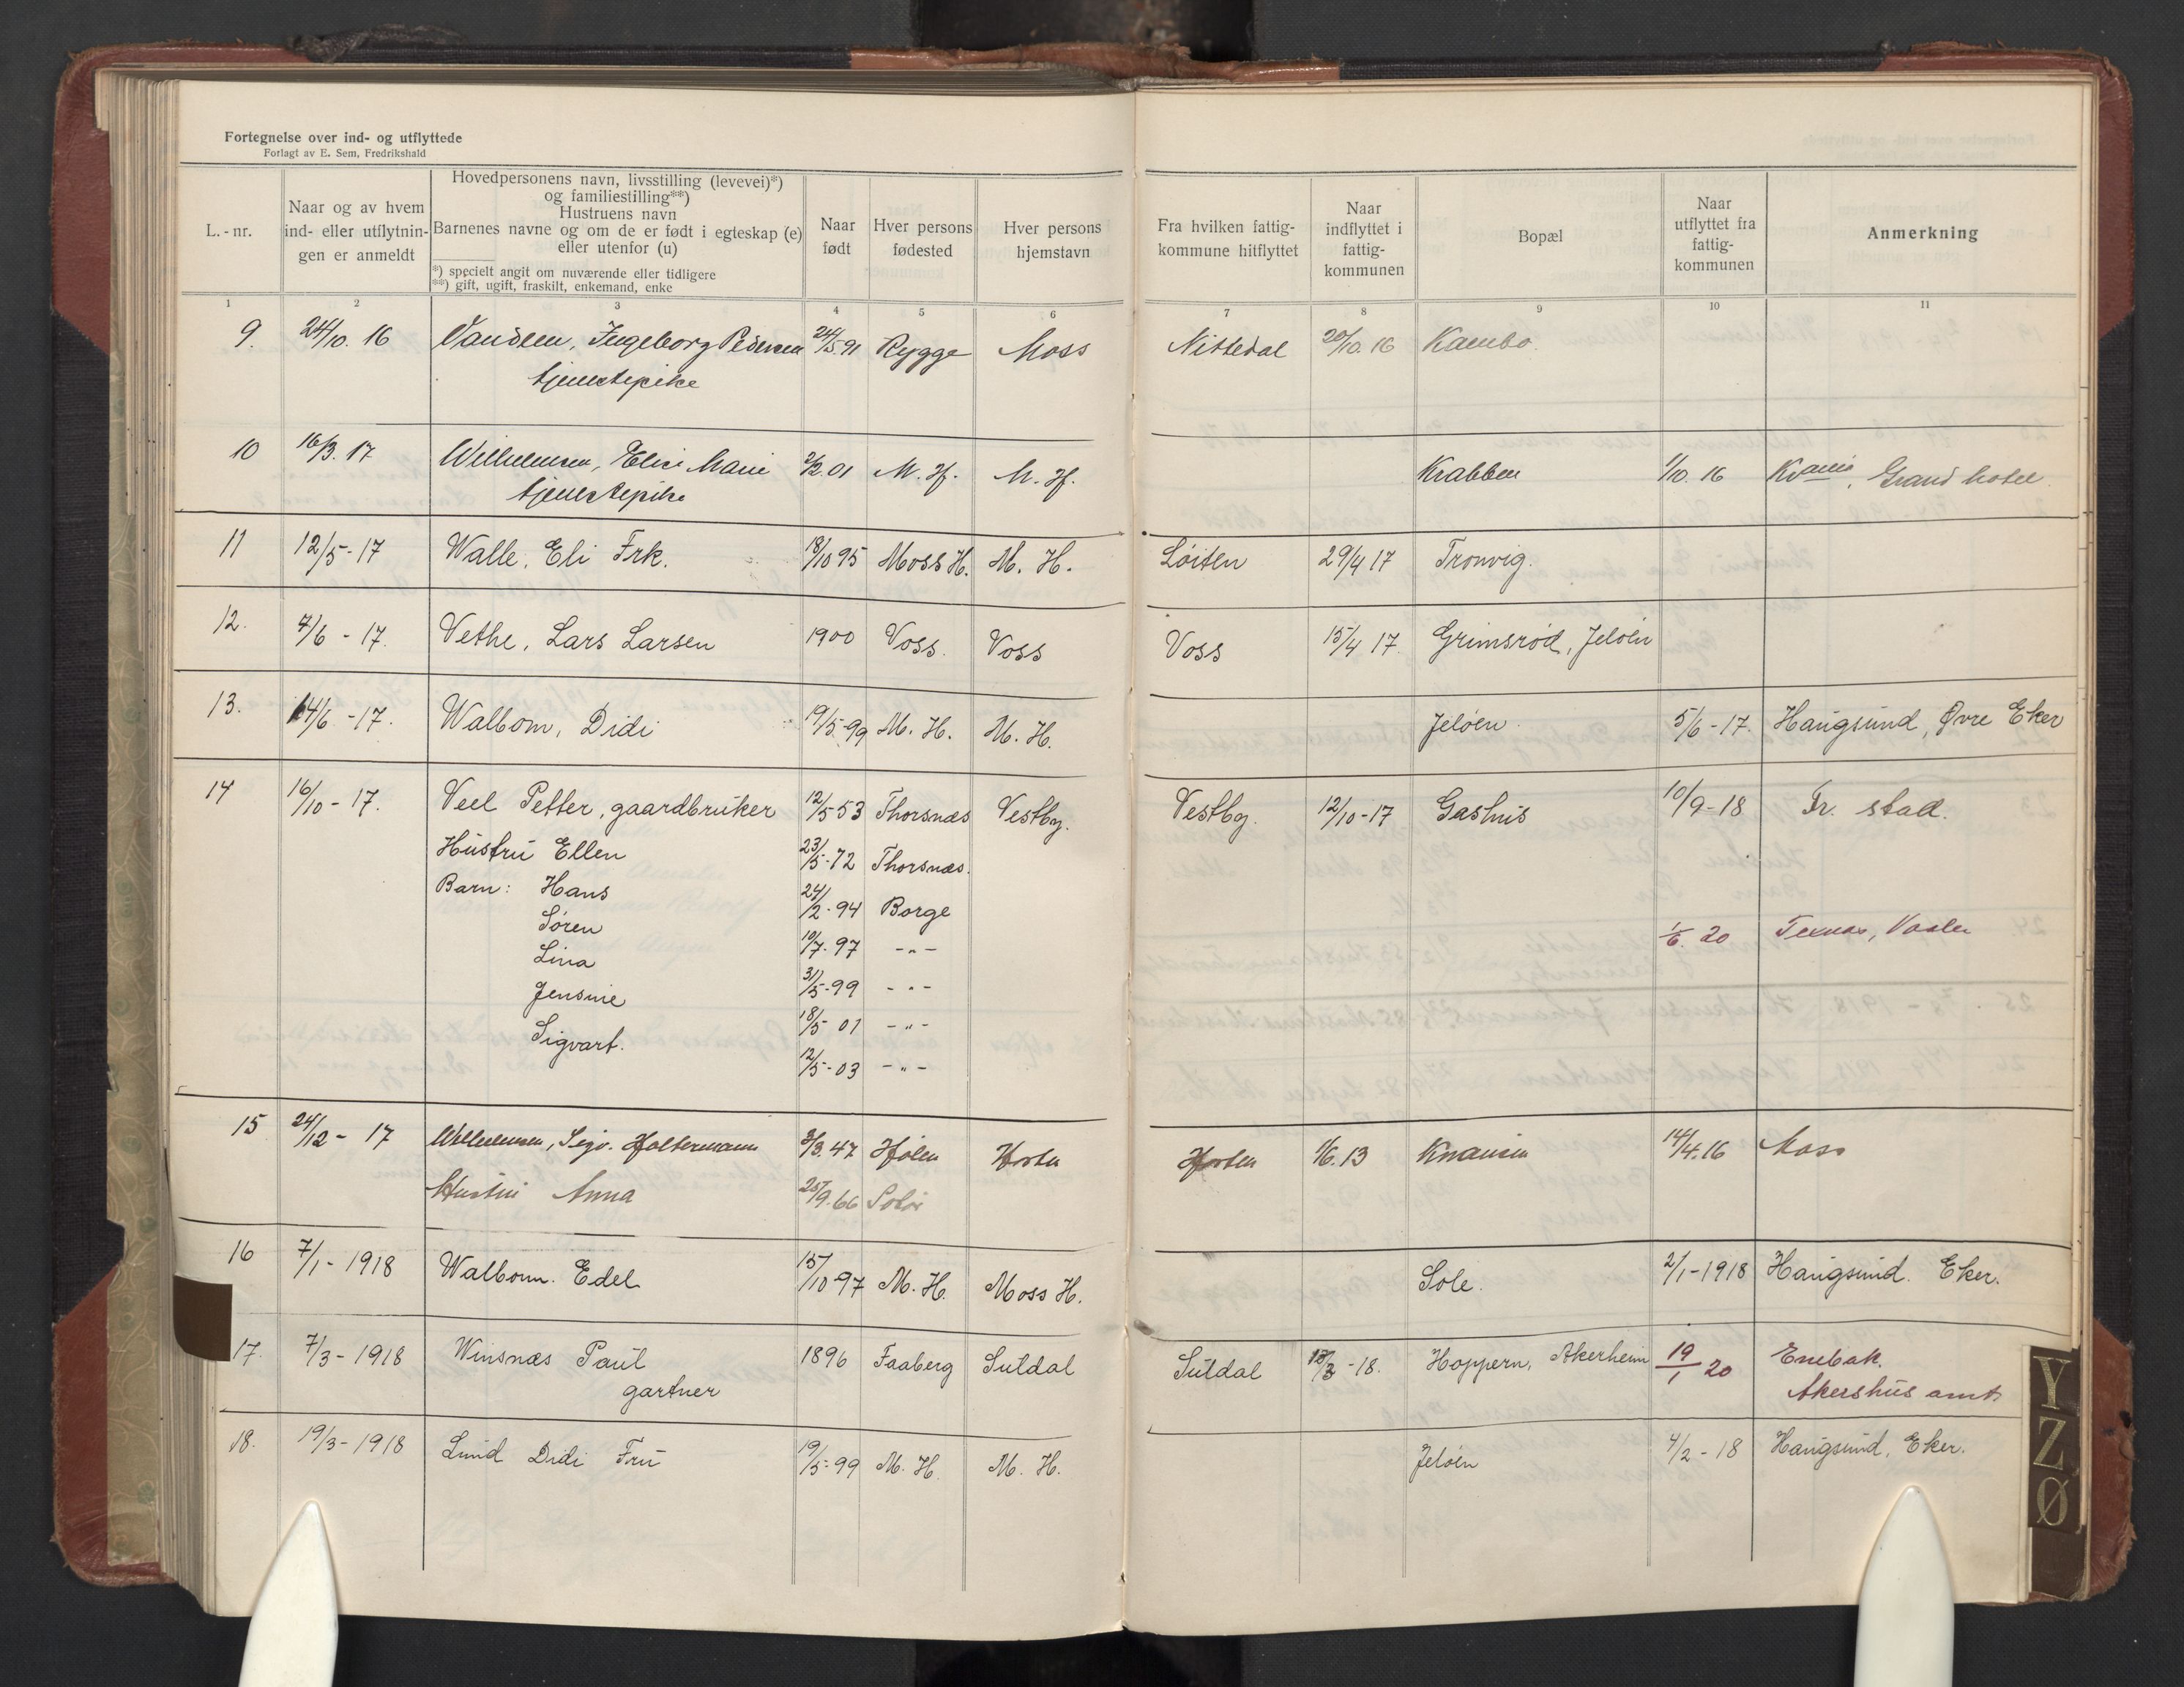 Fortegnelse over ind- og utflyttede
Forlagt av E. Sem, Fredrikshald
L.-nr.
Naar og av hvem ind- eller utflytnin- gen er anmeldt
Hovedpersonens navn, livsstilling (levevei)*)
og familiestilling**)
Hustruens navn
Barnenes navne og om de er født i egteskap (e)
eller utenfor (u)
*) specielt angit om nuværende eller tidligere
**) gift, ugift, fraskilt, enkemand, enke
Naar født
Hver persons fødested
Hver persons hjemstavn
Fra hvilken fattig- kommune hitflyttet
Naar indflyttet i fattig- kommunen
Bopæl
Naar utflyttet fra fattig- kommunen
Anmerkning
1 2 3 4 5 6 7 8 9 10 11
9. 24/10. 16 Vandsem, Ingeborg Pedersen 24/5.91 Rygge Moss Nittedal 20/10. 16 Kambo.
tjenestepike
10 16/3. 17 Wilhelmsen, Elise Marie 2/2.01 M. H. M. H. Krabben 1/10. 16 Kr.ania, Grand hotel.
tjenestepike
11 12/5-17 Walle, Eli Frk. 18/10 95 Moss H. M. H. Løiten 29/4 17 Tronvig.
12. 7/6 - 17. Vethe, Lars Larsen 1900 Voss. Voss Voss 15/4 17. Grimsrød, Jeløen
13. 14/6 -17. Walbom, Didi 19/5-99 M. H. M. H. Jeløen. 5/6-17. Haugsund, Øvre Eker
14 16/10-17. Veel Petter, gaardbruker 12/5-53 Thorsnæs Vestby. Vestby. 12/10-17 Gashus 10/9-18 Fr. stad.
Hustru Ellen 23/5-72 Thorsnæs.
Barn: Hans 24/2-94 Borge
Søren 10/7-97 -"-
1/6. 20
Lina 31/5-99 -"-
Jensine 18/5 01 -"-
Sigvart. 12/5-03 -"-
15 24/12 - 17 Wilhelmsen, Sigv. Holtermann 2/3.47 Hølen Horten Horten 1/6.13 Knausen 14/4.16 Moss
Hustru Anna 25/9.66 Solør
16 7/1-1918 Walbom. Edel 15/10-97 M. H. Moss H. Sole. 2/1-1918 Haugsund. Eker.
17. 7/3-1918 Winsnæs Paul 1896 Faaberg Suldal Suldal 15/3-18. Hoppern, Akerheim 19/1 20 Enebak.
gartner Akershus amt
18. 19/3-1918 Lund Didi Fru 19/5-99 M. H. M. H. Jeløen 4/2-18 Haugsund, Eker.
Y
Z
Ø